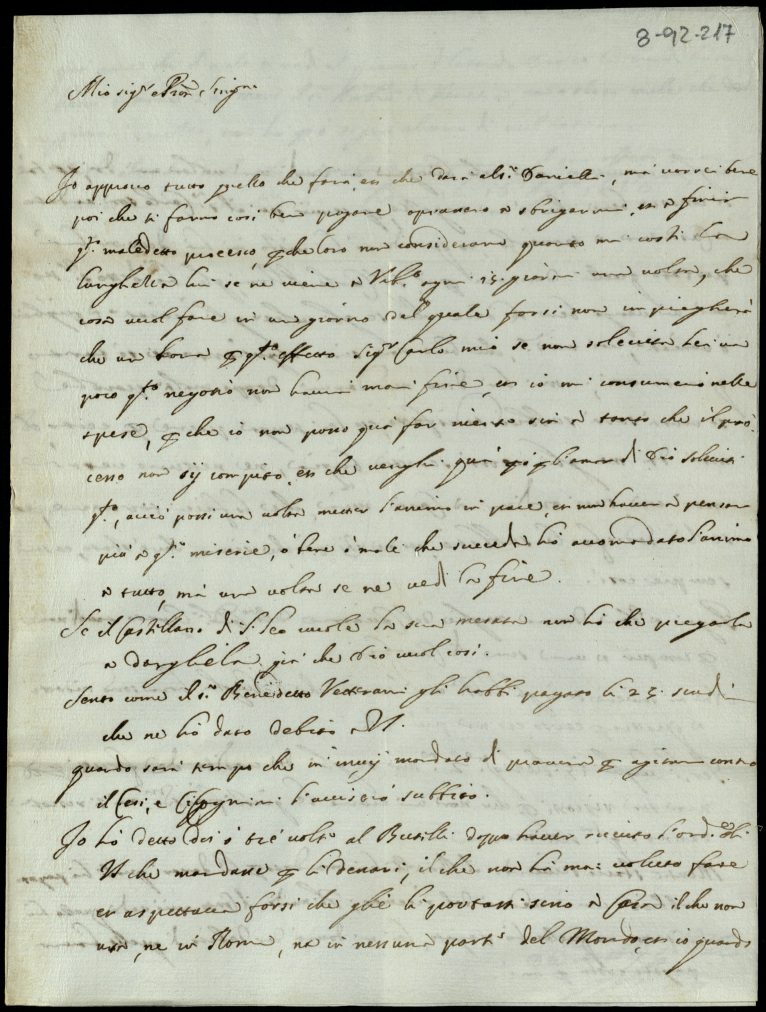 8-92-217
Mio sig.r e Pron Sing.mo
Io approvo tutto quello che farà, et che darà al s.r Danielli, má vorrei bene
poi che si fanno cosi ben pagare a sbrigarmi, et a finir
q.to maledetto processo, che loro non considerano quanto mi costi la
lunghezza lui se ne viene a Urb.o ogni 15 giorni una volta, che
cosa vuol fare in un giorno del quale forsi non impiegherà
che un hora q.to effetto sig.r Carlo mio se non solecita lei un
poco q.to negotio non haverà mai fine, et io mi consumerò nelle
spese, che io non posso quà far niente sin a tanto che il pro-
cesso non sij compito, et che venghi quà gl'amor di Dio soleciti
q.to, acciò possi una volta metter l'animo in pace, et non haver a pensar
più a q.te miserie, ò bene ò male che succeda hò accomodato l'animo
a tutto, má una volta se ne vedi la fine.
Se il Castellano di S. Leo vuole la sua mesata non hò che pregarla
a dargliela già che Dio vuol cosi.
Sento come il s.r Benedetto Vetterani gli habbi pagato li 25 scudi
che ne hò dato debito a VS.
quando sarà tempo che invij mandato di procura agitare contro
il Cesi, e l'avviserò subbito.
Io hò detto doi ò trè volte al Busilli doppo haver ricevuto l'ord.e di
VS che mandasse li denari, il che non hà mai voluto fare
et aspettava forsi che gliè li portassi sino a Casa il che non
usa, ne in Roma, ne in nessuna parte del Mondo, et io quando